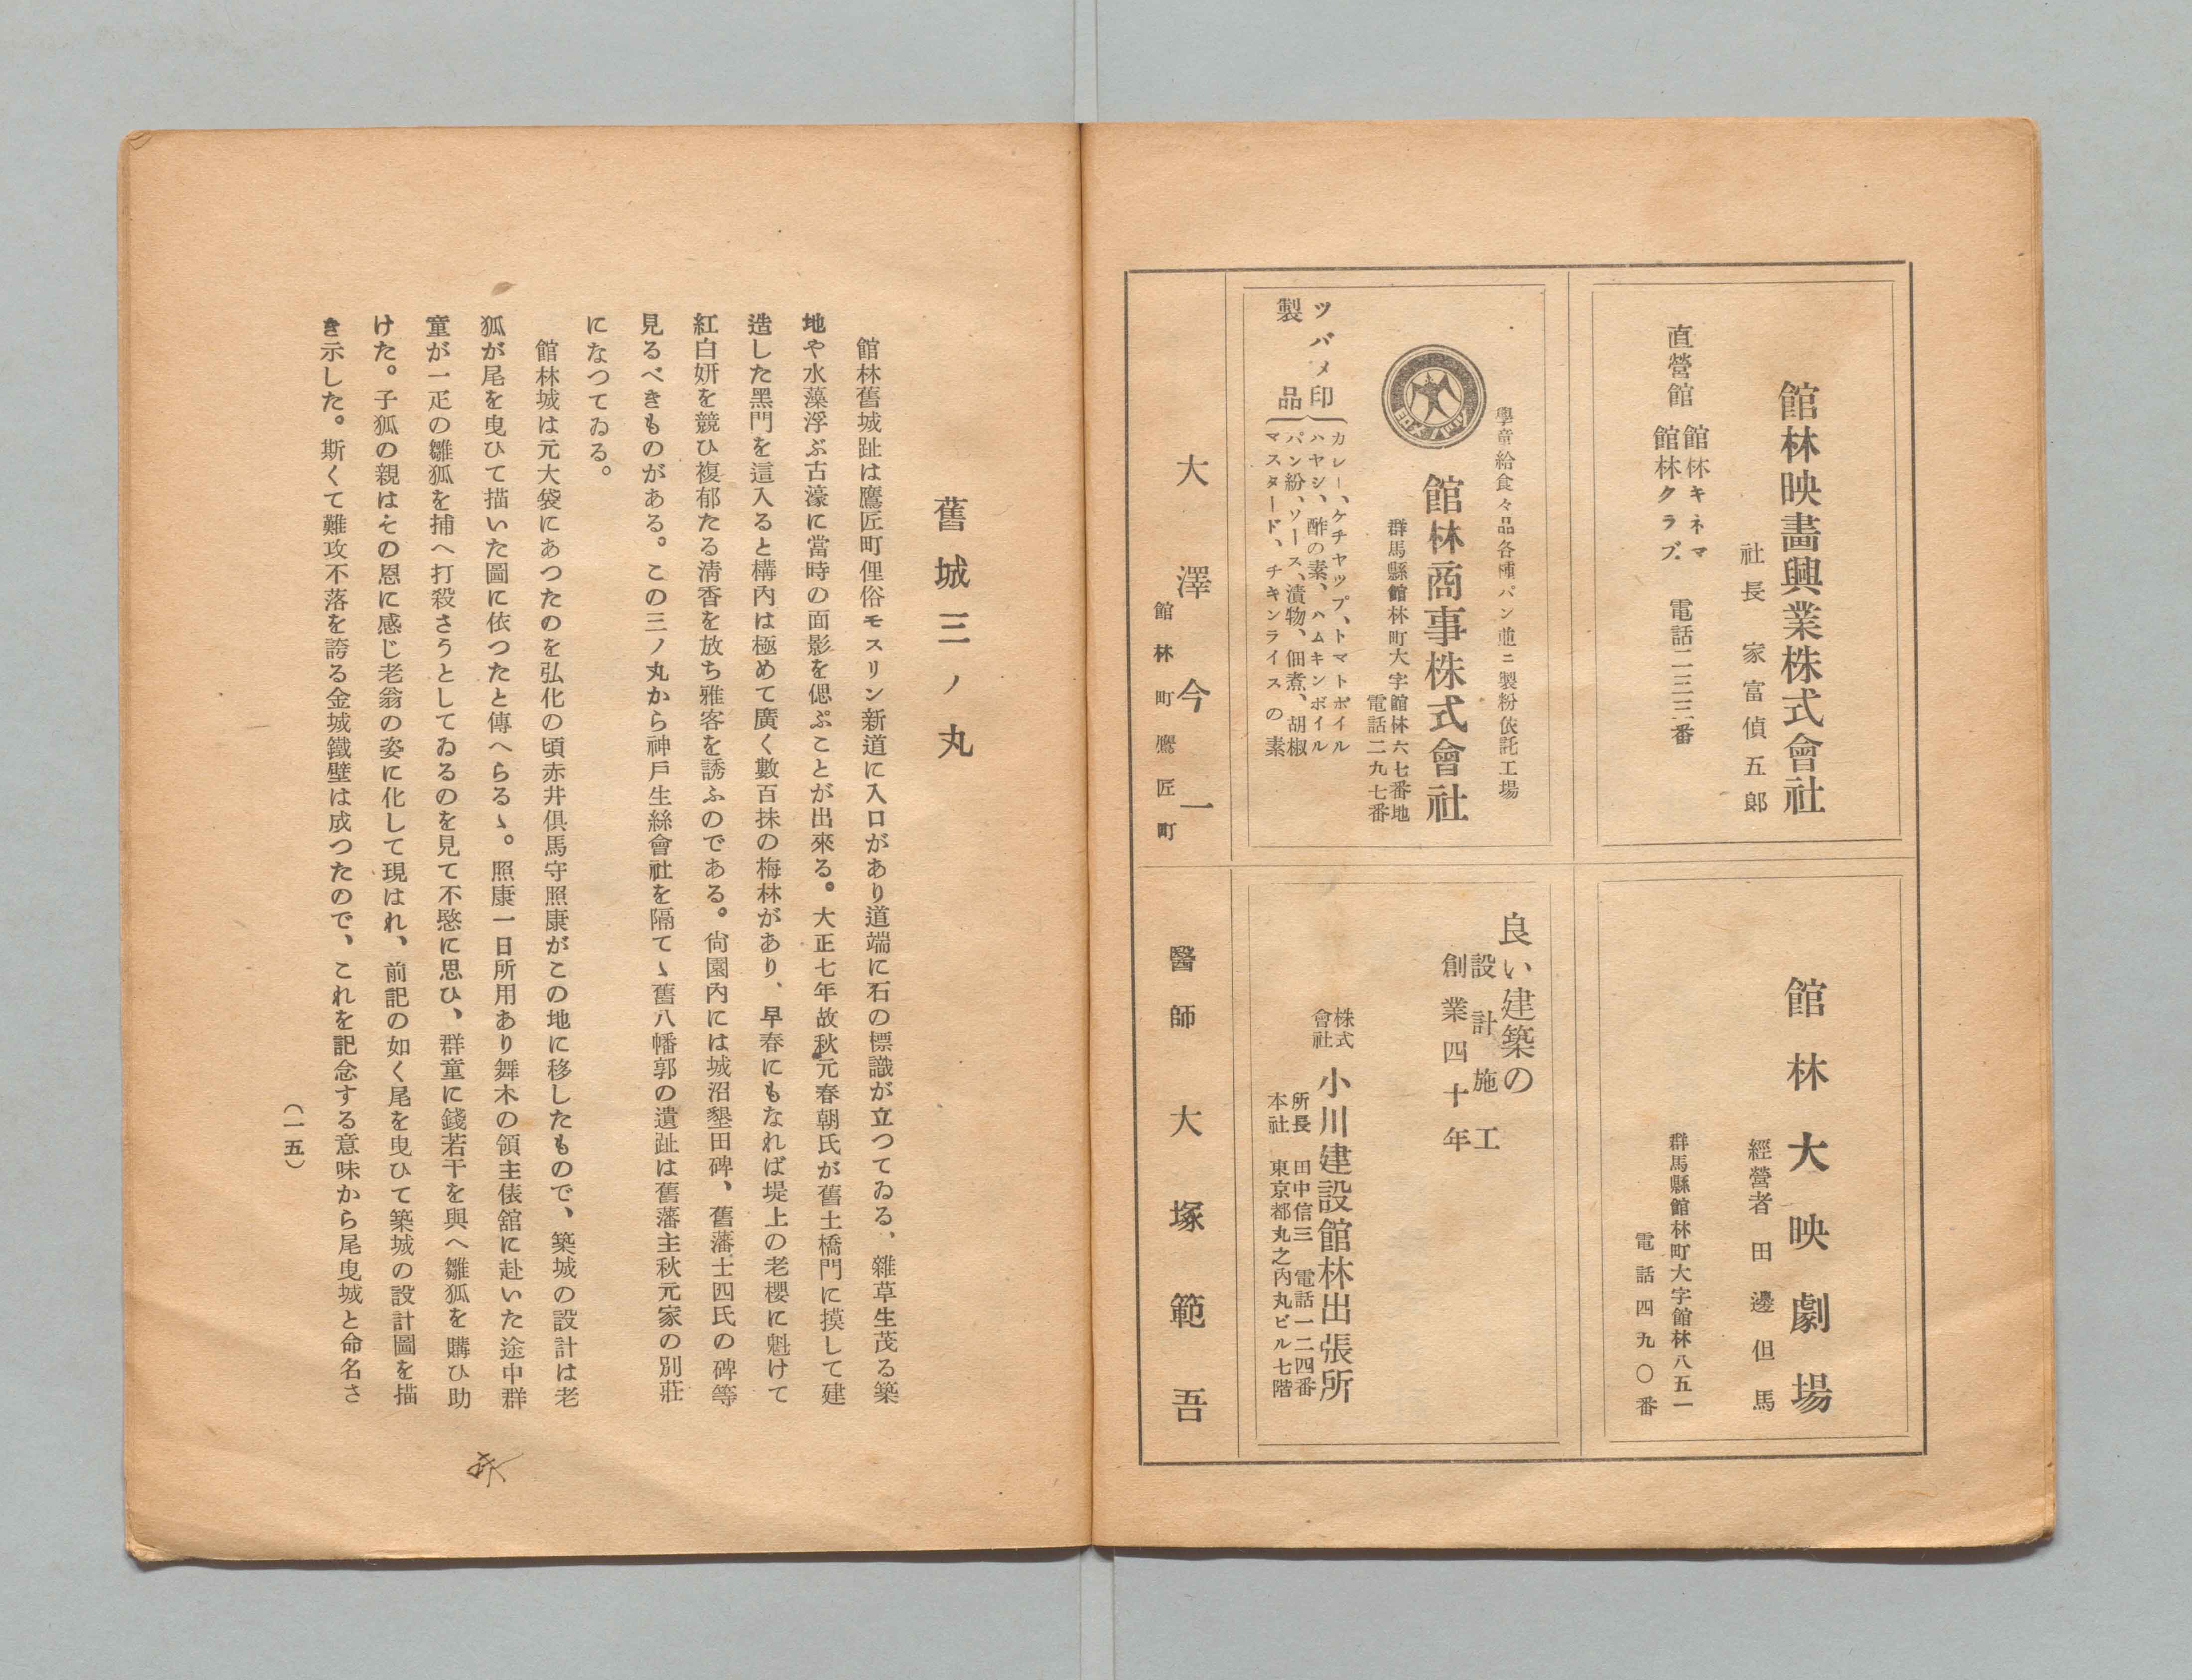 館林映畵興業株式會社
社長 家富偵五郎
直營館
館林キネマ
館林クラブ
電話二三三番
館林大映劇場
經營者 田邊但馬
群馬縣館林町大字館林八五一
電話四九〇番
學童給食々品各種パン並ニ製粉依託工場
館林商事株式會社
群馬縣館林町大字館林六七番地
電話二九七番
ツバメ印
製品
カレー、ケチヤツプ、トマトボイル
ハヤシ、酢の素、ハムキンボイル
パン紛、ソース、漬物、佃煮、胡椒
マスタード、チキンライスの素
良い建築の
設計施工
創業四十年
株式會社 小川建設館林出張所
所長 田中信三 電話一二四番
本社 東京都丸之內丸ビル七階
大澤今一
館林町鷹匠町
醫師 大塚範吾
舊城三ノ丸
館林舊城趾は鷹匠町俚俗モスリン新道に入口があり道端に石の標識が立つてゐる、雜草生茂る築
地や水藻浮ぶ古濠に當時の面影を偲ぶことが出來る。大正七年故秋元春朝氏が舊土橋門に摸して建
造した黑門を這入ると構內は極めて廣く數百抹の梅林があり、早春にもなれば堤上の老櫻に魁けて
紅白姸を競ひ複郁たる淸香を放ち雅客を誘ふのである。尙園內には城沼墾田碑、舊藩士四氏の碑等
見るべきものがある。この三ノ丸から神戶生絲會社を隔てゝ舊八幡郭の遺趾は舊藩主秋元家の別莊
になつてゐる。
館林城は元大袋にあつたのを弘化の頃赤井倶馬守照康がこの地に移したもので、築城の設計は老
狐が尾を曳ひて描いた圖に依つたと傳へらるゝ。照康一日所用あり舞木の領主俵舘に赴いた途中群
童が一疋の雛狐を捕へ打殺さうとしてゐるのを見て不愍に思ひ、群童に錢若干を與へ雛狐を購ひ助
けた。子狐の親はその恩に感じ老翁の姿に化して現はれ、前記の如く尾を曳ひて築城の設計圖を描
き示した。斯くて難攻不落を誇る金城鐵壁は成つたので、これを記念する意味から尾曳城と命名さ
(一五)